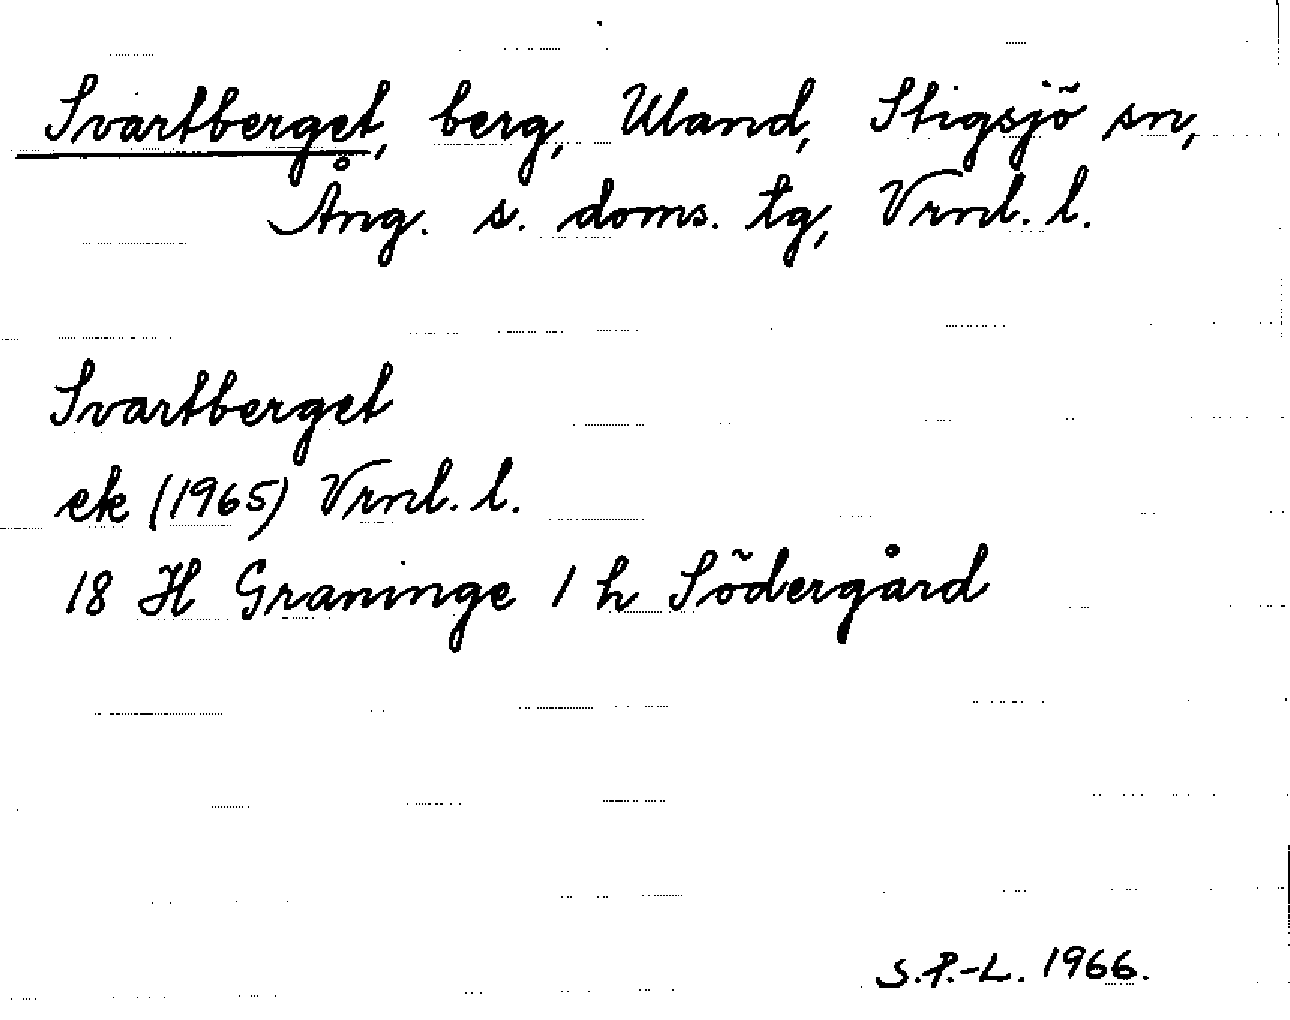 Svartberget, berg, Uland, Stigsjö sn,
Ång. s. doms. tg, Vrnl. l.
Svartberget
ek (1965) Vrnl. l.
18 H Graninge 1 h Södergård
S.P.-L. 1966.